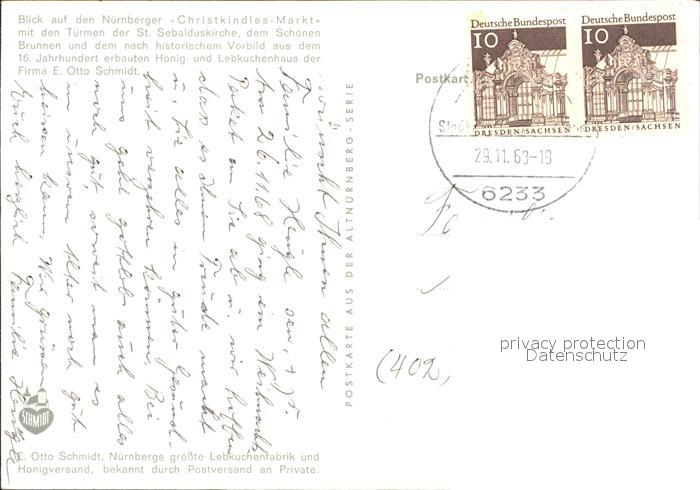 Blick auf den Nürnberger »Christkindles-Markt«
mit den Türmen der St. Sebalduskirche, dem Schönen
Brunnen und dem nach historischem Vorbild aus dem
16. Jahrhundert erbauten Honig- und Lebkuchenhaus der
Firma E. Otto Schmidt.
wünscht Ihnen allen
Familie Hengle sen. + jr.
26.11.68 ging ein Weihnachts
Paket an Sie ab u. wir hoffen
dass es Ihnen Freude macht
u. Sie alles in guter Gesund-
heit verzehren können. Bei
uns geht gottlob auch alles
noch gut, soweit man es
in unserem Alter noch gut
heissen kann. Wir grüssen
Euch herzlich Familie
SCHMIDT
E. Otto Schmidt, Nürnbergs größte Lebkuchenfabrik und
Honigversand, bekannt durch Postversand an Private.
POSTKARTE AUS DER ALTNÜRNBERG-SERIE
Postkart
Deutsche Bundespost
10
DRESDEN/SACHSEN
Deutsche Bundespost
10
DRESDEN/SACHSEN
29.11.68-19
6233
(402,
privacy protection
Datenschutz